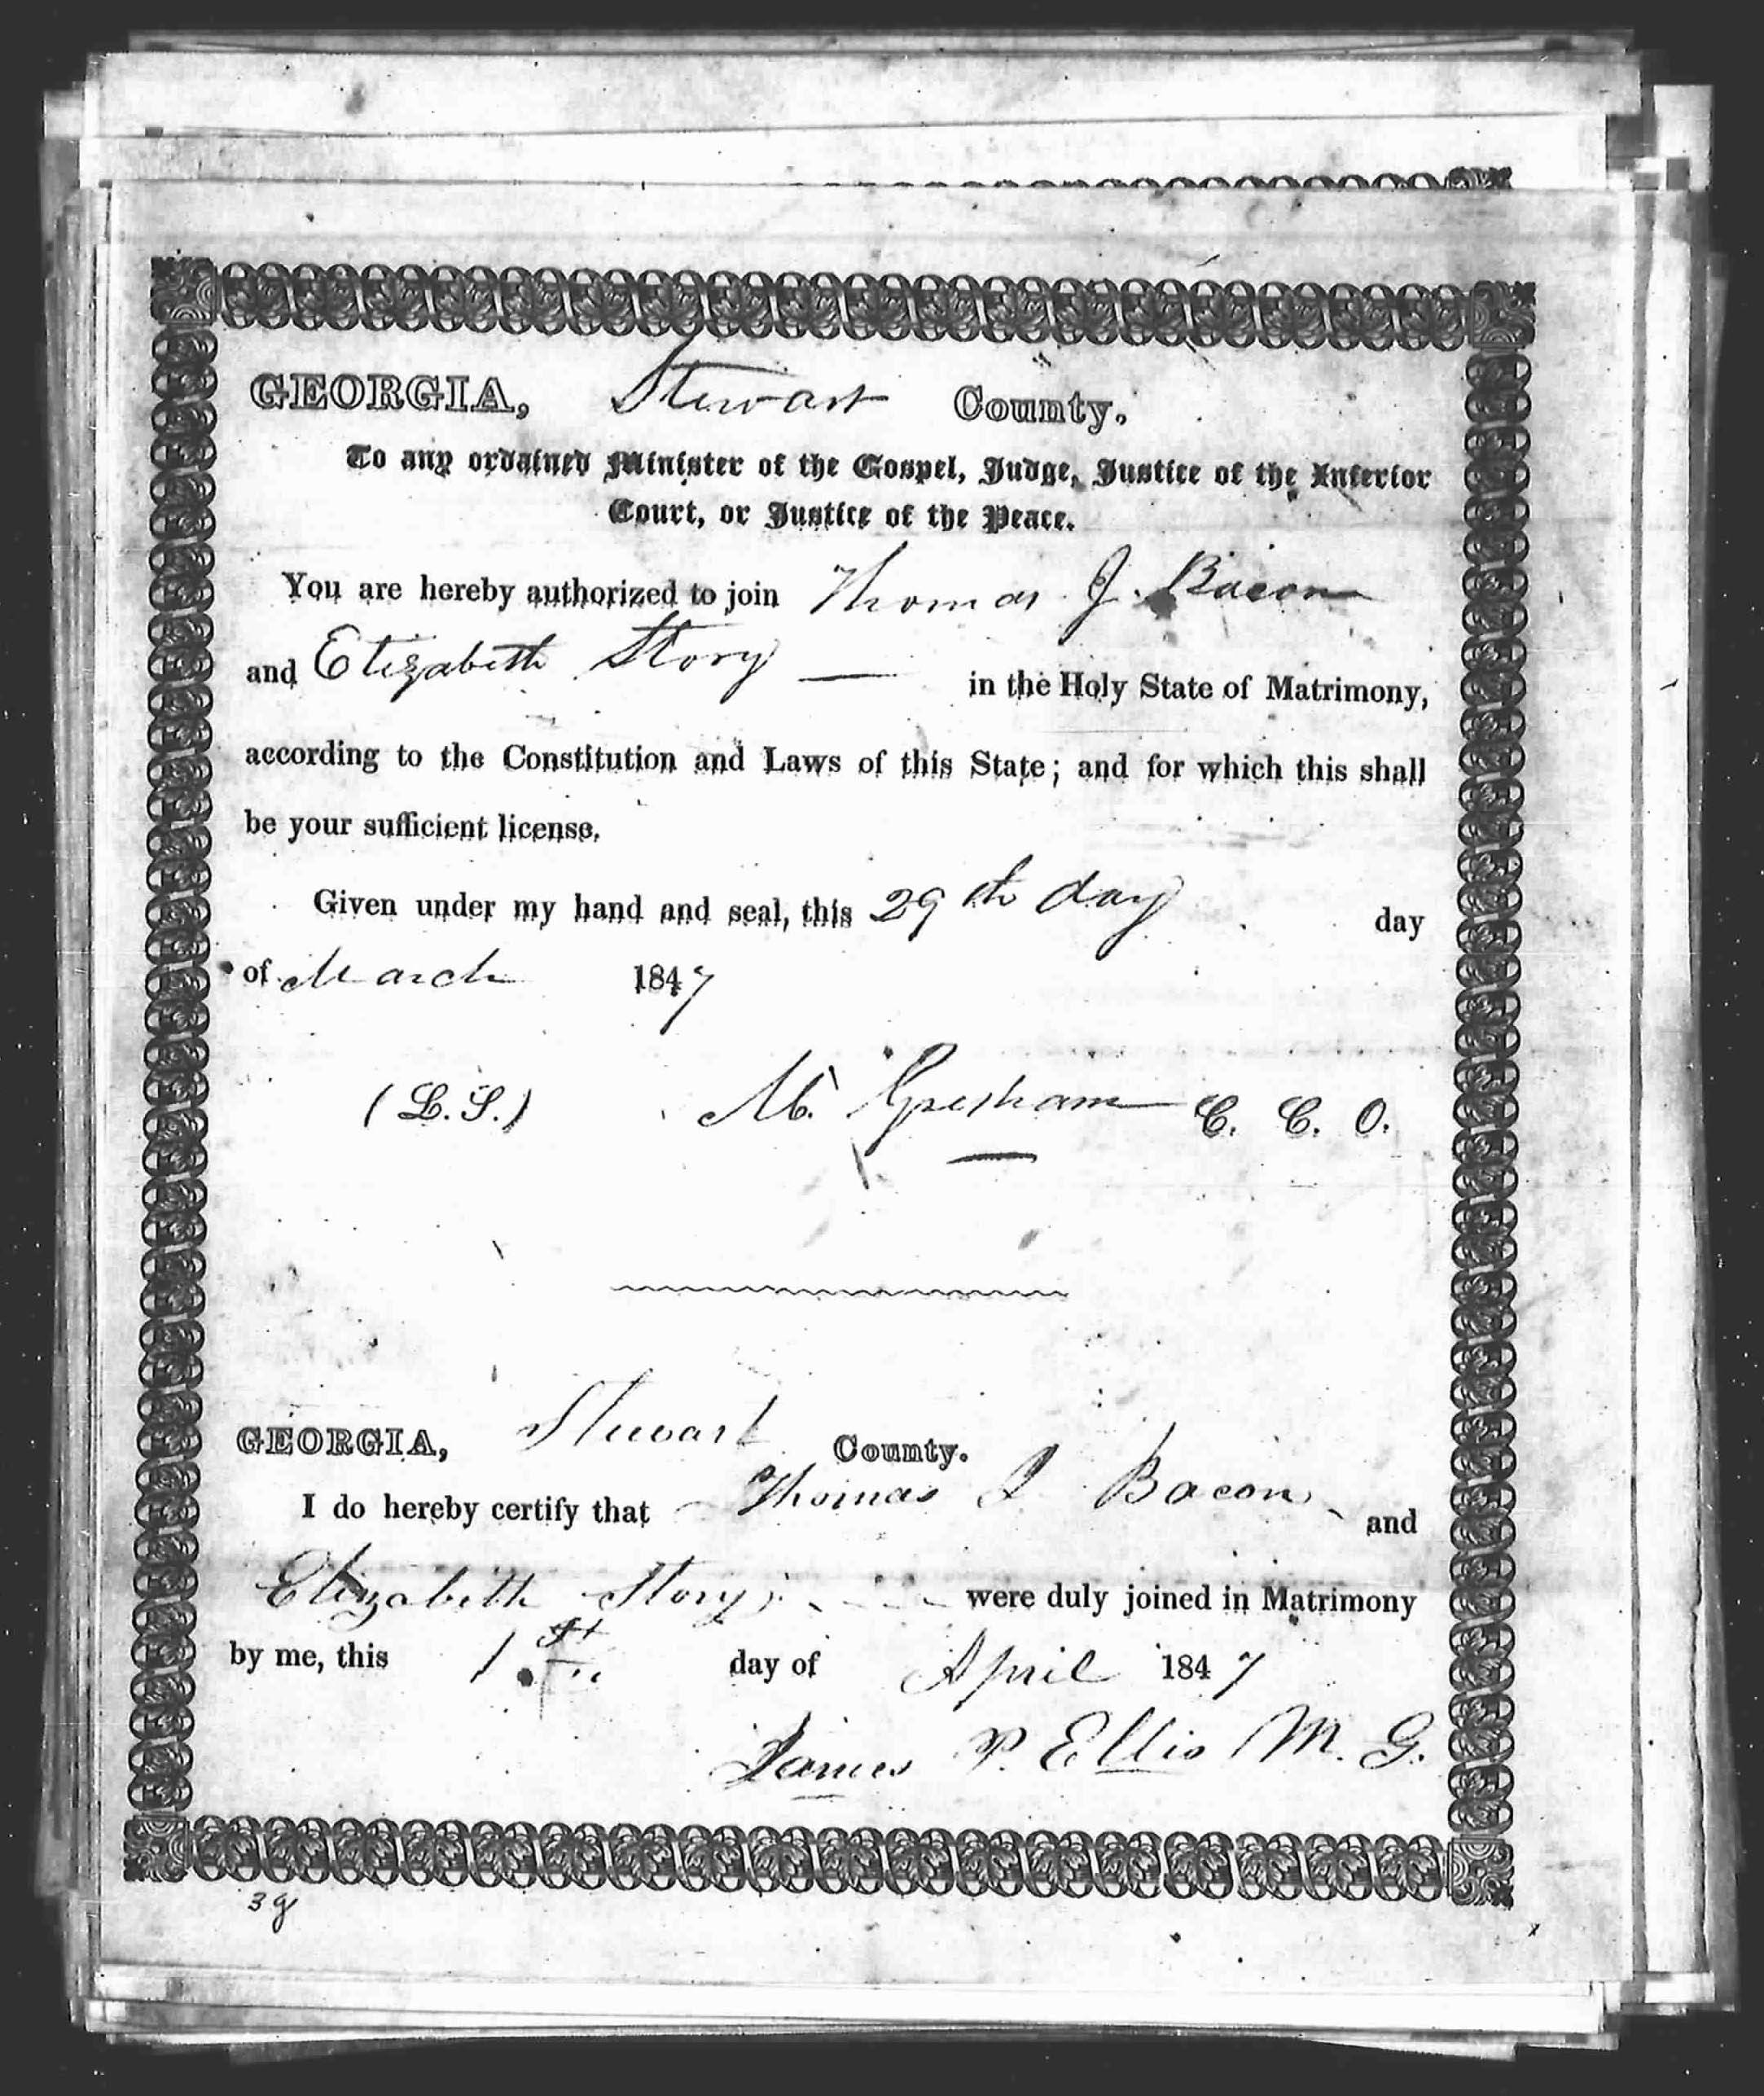 GEORGIA, Stewart County.
To any ordained Minister of the Gospel, Judge, Justice of the Inferior
Court, or Justice of the Peace.
You are hereby authorized to join Thomas J. Bacon
and Elizabeth Story — in the Holy State of Matrimony,
according to the Constitution and Laws of this State; and for which this shall
be your sufficient license.
Given under my hand and seal, this 29th day day
of March 1847
(L.S.) M. Gresham C. C. O.
GEORGIA, Stewart County.
I do hereby certify that Thomas J Bacon and
Elizabeth Story were duly joined in Matrimony
by me, this 1st day of April 1847
James P. Ellis M. G.
39